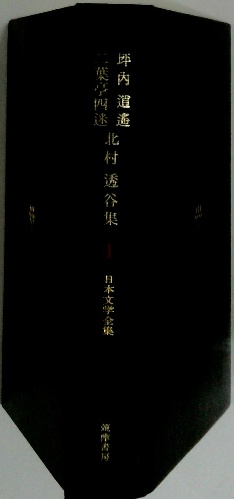 坪内 逍遙
二葉亭四迷
北村 透谷集
1
日本文学全集
筑摩書房